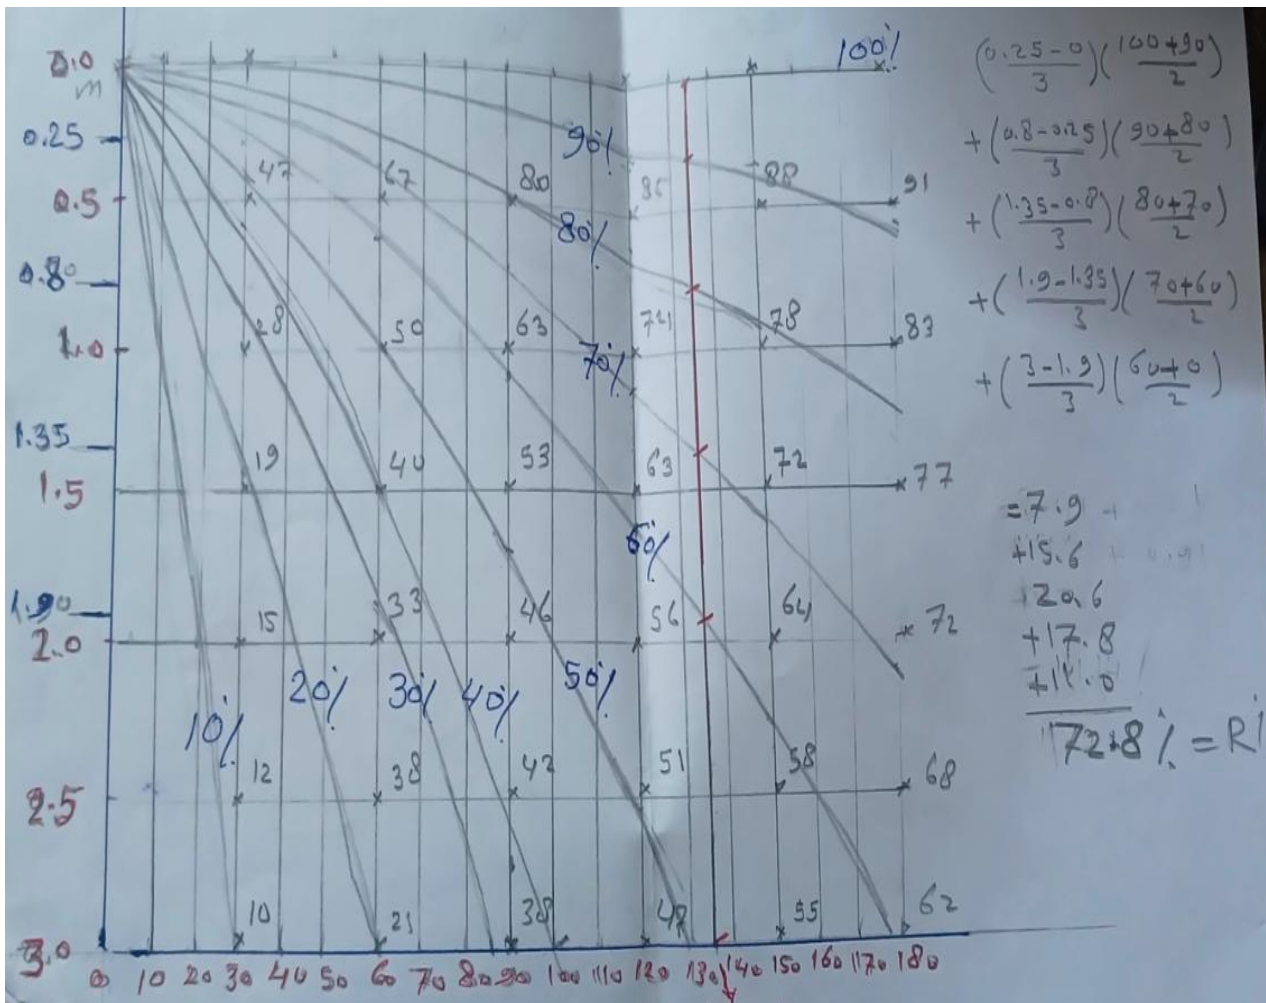 0.0
m
0.25
0.5
0.80
1.0
1.35
1.5
1.90
2.0
2.5
3.0
100%
90%
47 67 80 85 88 91
80%
28 50 63 74 78 83
70%
19 40 53 63 72 77
60%
15 33 46 56 64 72
10% 20% 30% 40% 50%
12 38 42 51 58 68
10 21 38 47 55 62
0 10 20 30 40 50 60 70 80 90 100 110 120 130 140 150 160 170 180
(0.25-0/3)(100+90/2)
+(0.8-0.25/3)(90+80/2)
+(1.35-0.8/3)(80+70/2)
+(1.9-1.35/3)(70+60/2)
+(3-1.9/3)(60+0/2)
=7.9
+15.6
+20.6
+17.8
+11.0
72.8% = R